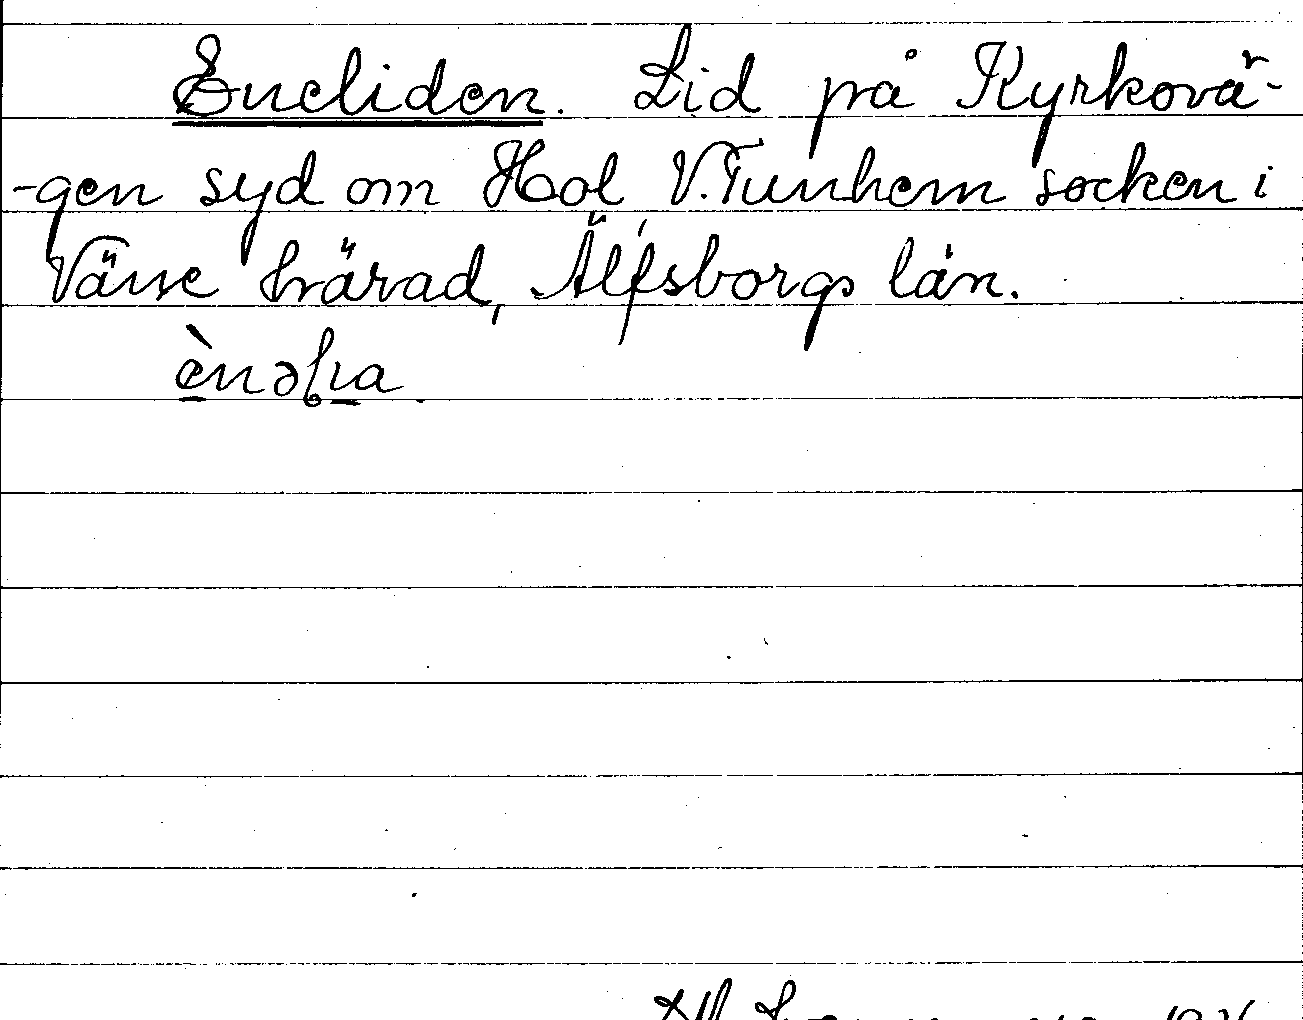 Eneliden. Lid på Kyrkovä-
-gen syd om Hol V. Tunhem socken i
Väne härad, Älfsborgs län.